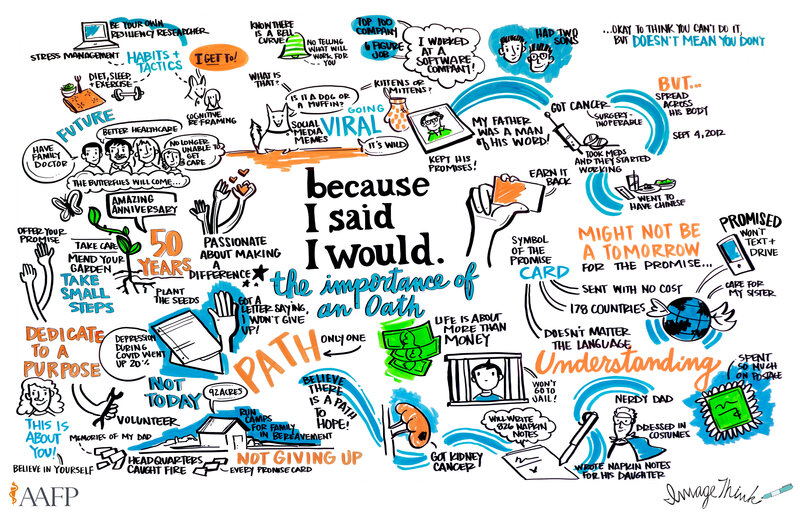 BE YOUR OWN
RESILIENCY RESEARCHER
STRESS MANAGEMENT
HABITS +
TACTICS
I GET TO!
DIET, SLEEP,
+ EXERCISE
COGNITIVE
RE-FRAMING
KNOW THERE
IS A BELL
CURVE
NO TELLING
WHAT WILL
WORK FOR
YOU
TOP 100
COMPANY
6 FIGURE
JOB
I WORKED
AT A
SOFTWARE
COMPANY!
HAD TWO
SONS
...OKAY TO THINK YOU CAN'T DO IT,
BUT DOESN'T MEAN YOU DON'T
WHAT IS
THAT?
IS IT A DOG OR
A MUFFIN?
KITTENS OR
MITTENS?
SOCIAL
MEDIA
MEMES
GOING
VIRAL
IT'S WILD
KEPT HIS
PROMISES!
MY FATHER
WAS A MAN
of HIS WORD!
GOT CANCER
SURGERY-
INOPERABLE
BUT...
SPREAD
ACROSS
HIS BODY
SEPT 4, 2012
TOOK MEDS
AND THEY STARTED
WORKING
WENT TO
HAVE CHINESE
FUTURE
BETTER HEALTHCARE
HAVE
FAMILY
DOCTOR
NO LONGER
UNABLE TO
GET
CARE
THE BUTTERFLIES WILL COME...
AMAZING
ANNIVERSARY
50
YEARS
OFFER YOUR
PROMISE
TAKE CARE
MEND YOUR
GARDEN
TAKE
SMALL
STEPS
PLANT
THE SEEDS
PASSIONATE
ABOUT MAKING
A
DIFFERENCE
because
I said
I would.
the importance of
an Oath
EARN IT
BACK
SYMBOL OF
THE PROMISE
CARD
SENT WITH NO COST
178 COUNTRIES
DOESN'T MATTER
THE LANGUAGE
MIGHT NOT BE
A TOMORROW
FOR THE PROMISE...
PROMISED
WON'T
TEXT +
DRIVE
CARE FOR
MY SISTER
Understanding
SPENT
SO MUCH
ON POSTAGE
DEDICATE
TO A
PURPOSE
DEPRESSION
DURING
COVID WENT
UP 20%
GOT A
LETTER SAYING,
I WON'T GIVE
UP!
PATH
ONLY ONE
LIFE IS ABOUT
MORE THAN
MONEY
WON'T
GO TO
JAIL!
NOT
TODAY
THIS IS
ABOUT
YOU!
BELIEVE IN YOURSELF
VOLUNTEER
MEMORIES OF MY DAD
HEADQUARTERS
CAUGHT FIRE
92 ACRES
RUN
CAMPS
FOR FAMILY
IN BEREAVEMENT
NOT GIVING UP
EVERY PROMISE CARD
BELIEVE
THERE
IS A PATH
TO
HOPE!
GOT KIDNEY
CANCER
WILL WRITE
826 NAPKIN
NOTES
WROTE NAPKIN NOTES
FOR HIS DAUGHTER
NERDY DAD
DRESSED IN
COSTUMES
AAFP
ImageThink